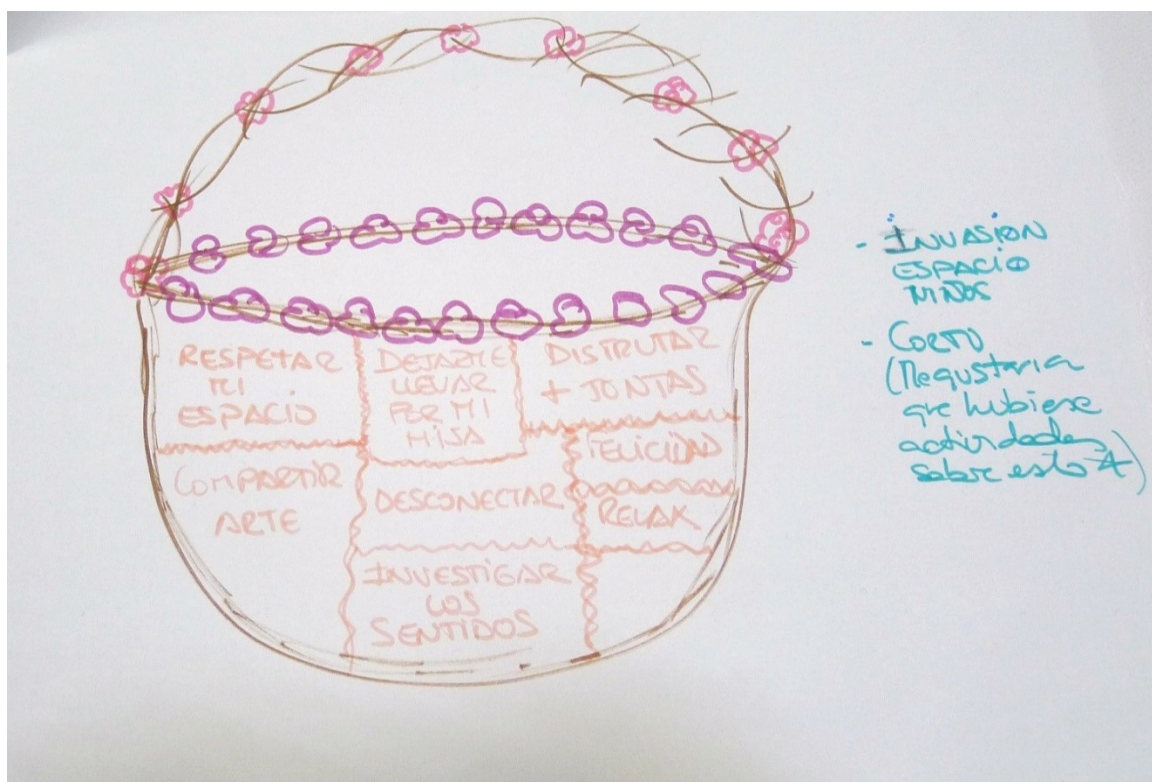 RESPETAR
MI
ESPACIO
DEJARME
LLEVAR
POR MI
HIJA
DISFRUTAR
+ JUNTAS
COMPARTIR
ARTE
DESCONECTAR
FELICIDAD
RELAX
INVESTIGAR
LOS
SENTIDOS
- INVASION
ESPACIO
NIÑOS
- CORTO
(Me gustaria
que hubiese
actividades
sobre esto